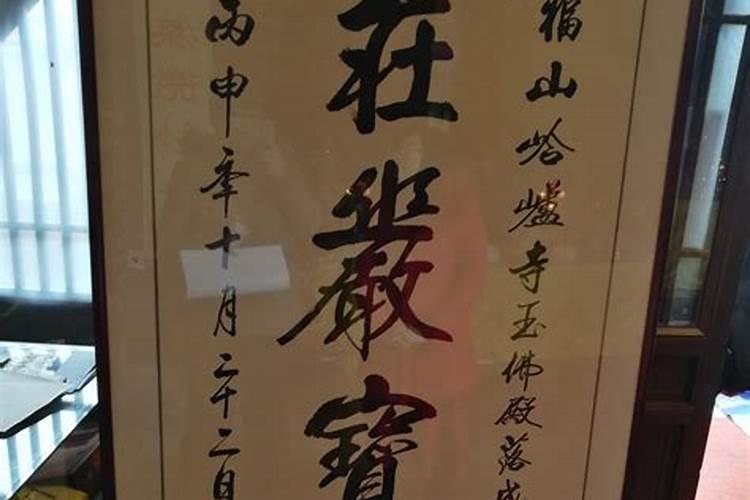 福山峆㠠寺玉佛殿落成
莊嚴寶
丙申年十月二十二日